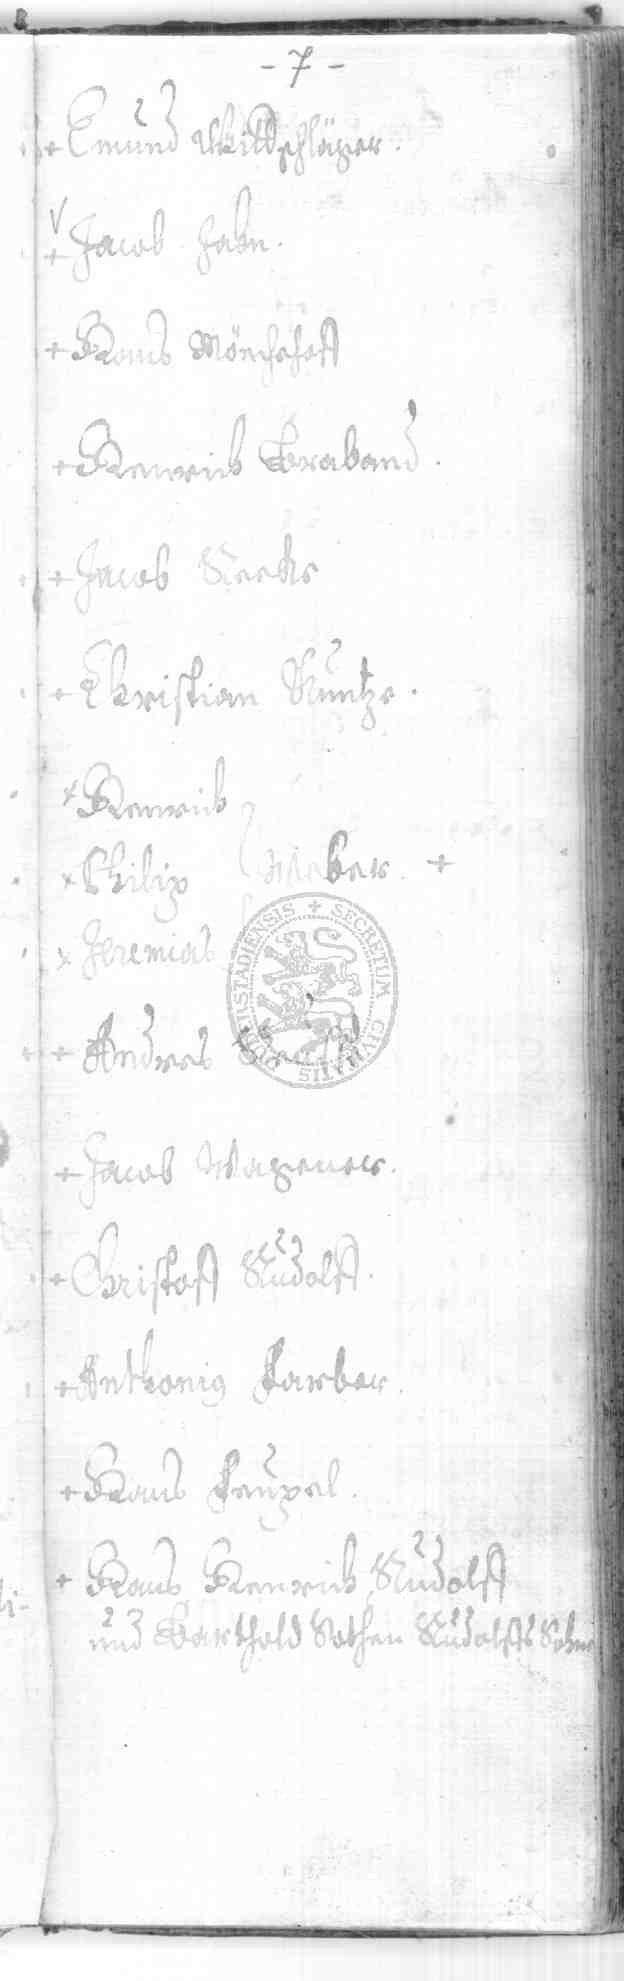 - 7 -
+ Emund Wildschläger.
+ Jacob Hahn.
+ Hans Mönchehoff
+ Henrich Braband.
+ Jacob
+ Christian Kuntze.
x Henrich
x Philip Weber. +
x Jeremias
+ Andres
+ Jacob Wagener.
+ Christoff Rudolff.
+ Anthonius Farber.
+ Hans
+ Hans Henrich Rudolff
und Barthold Rudolffs Sohn
SECRETUM CIVITATIS